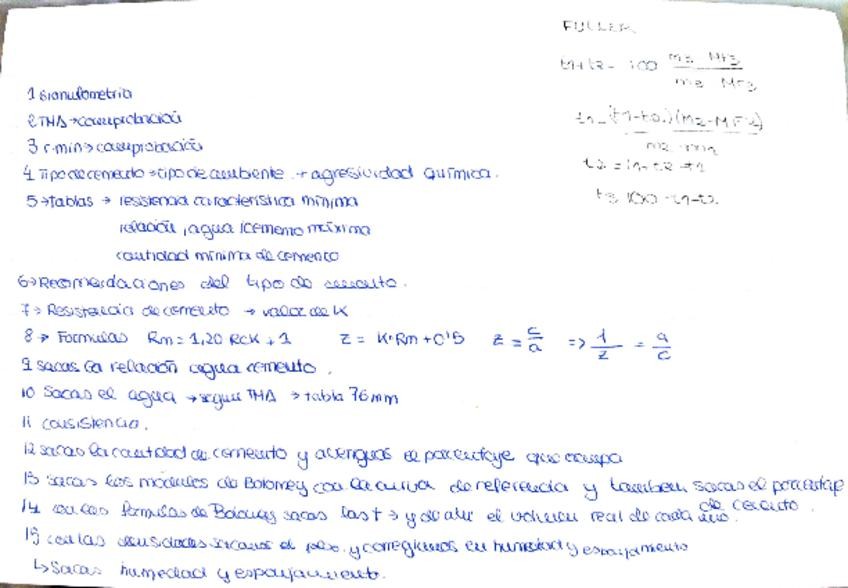 FULLER
1 Granulometria
2 THA → comprobación
3 r.min → comprobación
4 Tipo de cemento → tipo de ambiente → agresividad química.
5 → tablas → resistencia característica mínima
relación agua/cemento máxima
cantidad mínima de cemento
6 → Recomendaciones del tipo de cemento.
7 → Resistencia de cemento → valor de K
8 → Formulas Rm = 1,20 RCK + 1 Z = K·Rm + 0'5 Z = c/a => 1/Z = a/c
9 sacas la relación agua cemento.
10 Sacas el agua → segun THA → tabla 76mm
11 consistencia.
12 sacas la cantidad de cemento y averiguas el porcentaje que ocupa
13 sacas los módulos de Bolomey con la curva de referencia y tambien sacas el porcentaje de cemento.
14 con las formulas de Bolomey sacas las t → y de ahí el volumen real de cada uno.
15 con las densidades sacamos el peso y corregimos en humedad y esponjamiento
↳ Sacas humedad y esponjamiento.